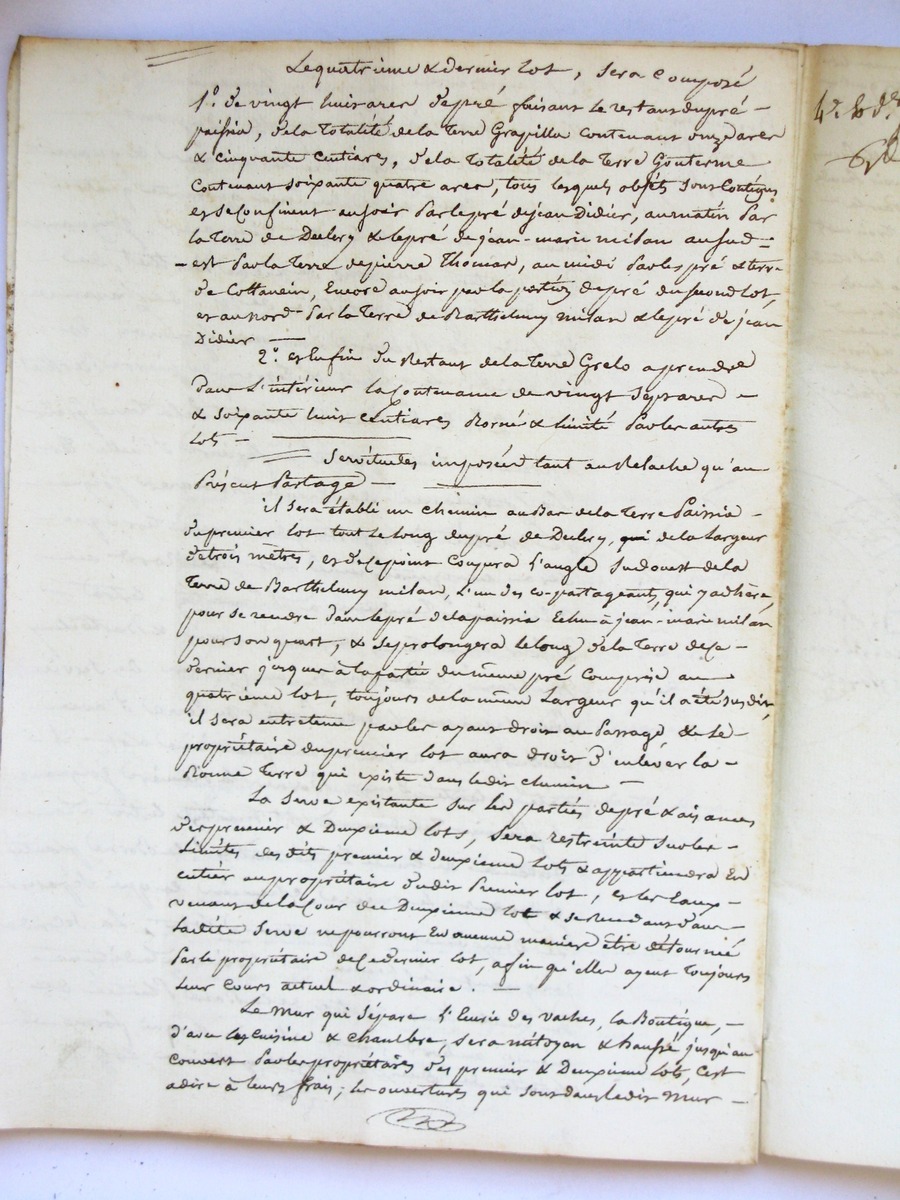 Le quatrième & dernier lot, sera composé
1.° de vingt huit ares de pré faisant le restant du pré
paissia, de la totalité de la terre Grapilla contenant onze ares
& cinquante centiares, de la totalité de la terre Gouterme
contenant soixante quatre ares, tous lesquels objets sont contigus
et se confinent au soir par le pré de jean Didier, au matin par
la terre de Duclery & le pré de jean-marie milan au sud-
est par la terre de pierre Thomas, au midi par les pré & terre
de Cottavain, Encore au soir par la portion de pré du second lot,
et au nord par la terre de Barthelemy milan & le pré de jean
Didier —
2.° et Enfin du Restant de la terre Grelo a prendre
dans l'intérieur la contenance de vingt sept ares
& soixante huit centiares Borné & limité par les autres
lots —
Servitudes imposées tant au Relache qu'au
Présent Partage —
il sera établi un chemin au Bas de la terre Paissia
du premier lot tout le long du pré de Duclery, qui de la largeur
de trois mètres, et de ce point coupera l'angle sud ouest de la
terre de Barthelemy milan, l'un des co-partageants, qui y adhère,
pour se rendre dans le pré de la paissia Echu à jean-marie milan
pour son quart, & se prolongera le long de la terre de ce
dernier jusques à la partie du même pré comprise au
quatrième lot, toujours de la même largeur qu'il a été sus dit,
il sera entretenu par les ayans droit au Passage & le
propriétaire du premier lot aura droit d'enlever la
Bonne terre qui existe dans ledit chemin —
La Serve existante sur les parties de pré & aisances
des premier & Deuxième lots, sera restreinte sur les
limites des dits premier & deuxième lots & appartiendra En
entier au propriétaire dudit Premier lot, et les Eaux
venant de la Cour du Deuxième lot & se rendant dans
la dite Serve ne pourront En aucune manière être détournée
Par le propriétaire de ce dernier lot, afin qu'elles ayent toujours
leur cours actuel & ordinaire. —
Le mur qui sépare l'Ecurie des vaches, la Boutique,
d'avec les cuisine & chambre, sera mitoyen & haussé jusqu'au
couvert par les propriétaires des premier & Deuxième lots, C'est
adire à leurs frais; les ouvertures qui sont dans ledit mur
4.e & d.er